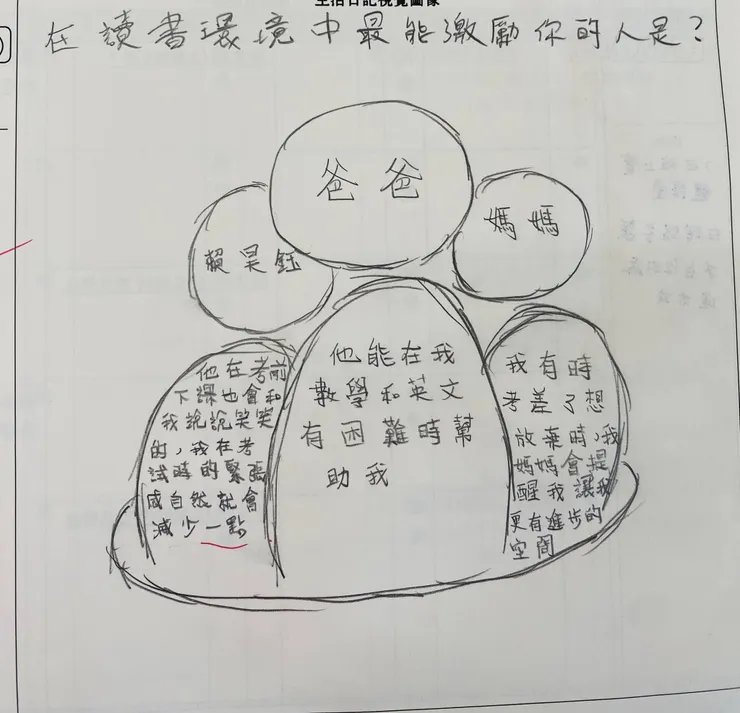 生活日記視覺圖像
在讀書環境中最能激勵你的人是？
爸爸
媽媽
賴昊鈺
他在考前
下課也會和
我說說笑笑
的，我在考
試時的緊張
感自然就會
減少一點
他能在我
數學和英文
有困難時幫
助我
我有時
考差了想
放棄時，我
媽媽會提
醒我讓我
更有進步的
空間